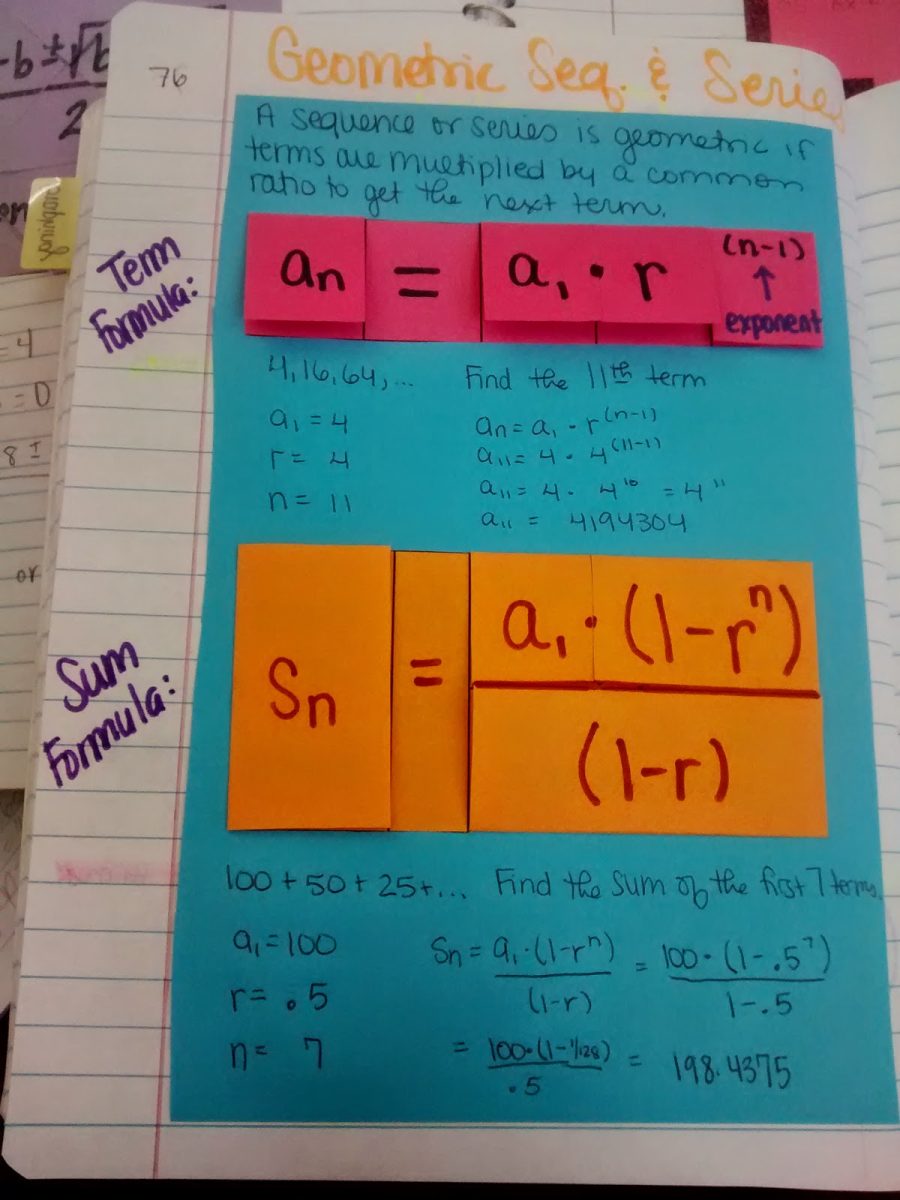 -b ± √b
2
76
Geometric Seq. & Serie
A sequence or series is geometric if
terms are multiplied by a common
ratio to get the next term.
Term
Formula:
an = a₁ · r (n-1)
↑
exponent
4, 16, 64, ... Find the 11th term
a₁ = 4
r = 4
n = 11
an = a₁ · r^(n-1)
a₁₁ = 4 · 4^(11-1)
a₁₁ = 4 · 4¹⁰ = 4¹¹
a₁₁ = 4194304
= 4
= 0
8 ±
or
Sum
Formula:
Sn = a₁ · (1-rⁿ)
(1-r)
100 + 50 + 25 + ... Find the sum of the first 7 terms.
a₁ = 100
r = .5
n = 7
Sn = a₁ · (1-rⁿ) / (1-r) = 100 · (1-.5⁷) / 1-.5
= 100 · (1-1/128) / .5 = 198.4375